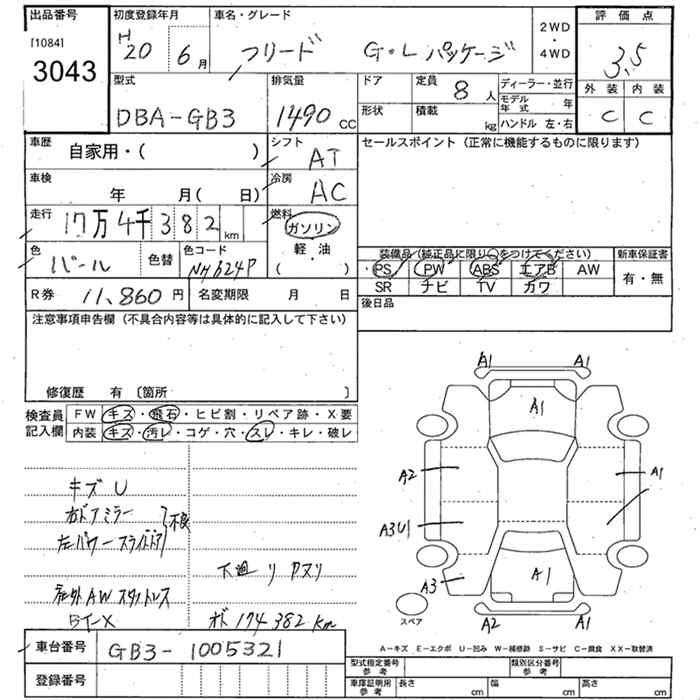 出品番号 初度登録年月 車名・グレード 2WD・4WD 評価点
[1084] 3043 H20 6月 フリード G・Lパッケージ 3,5
外装 内装
C C
型式 排気量 ドア 定員 8人 ディーラー・並行
DBA-GB3 1490cc 形状 積載 kg モデル年式 年
ハンドル 左・右
車歴 自家用・( ) シフト AT セールスポイント (正常に機能するものに限ります)
車検 年 月( 日) 冷房 AC
走行 17万4千382km 燃料 ガソリン 軽・油 ( )
色 パール 色替 色コード NH624P
装備品 (純正品に限り○をつけてください) 新車保証書
PS PW ABS エアB AW 有・無
SR ナビ TV カワ
R券 11,860円 名変期限 月 日
後日品
注意事項申告欄 (不具合内容等は具体的に記入して下さい)
修復歴 有 〔箇所 〕
検査員記入欄 FW キズ・飛石・ヒビ割・リペア跡・X要
内装 キズ・汚レ・コゲ・穴・スレ・キレ・破レ
キズ U
右ドアミラー
左パワースライドドア 不良
下廻リ サスリ
社外AW スタットレス
BT-X オド 174382km
A1 A1
A1
A2 A1
A3U1
A3 A1
A2 A1
スペア
A-キズ E-エクボ U-凹み W-補修跡 S-サビ C-腐食 XX-取替済
車台番号 GB3-1005321
登録番号
型式指定番号参考 類別区分番号参考
車庫証明用参考 長さ cm 幅 cm 高さ cm